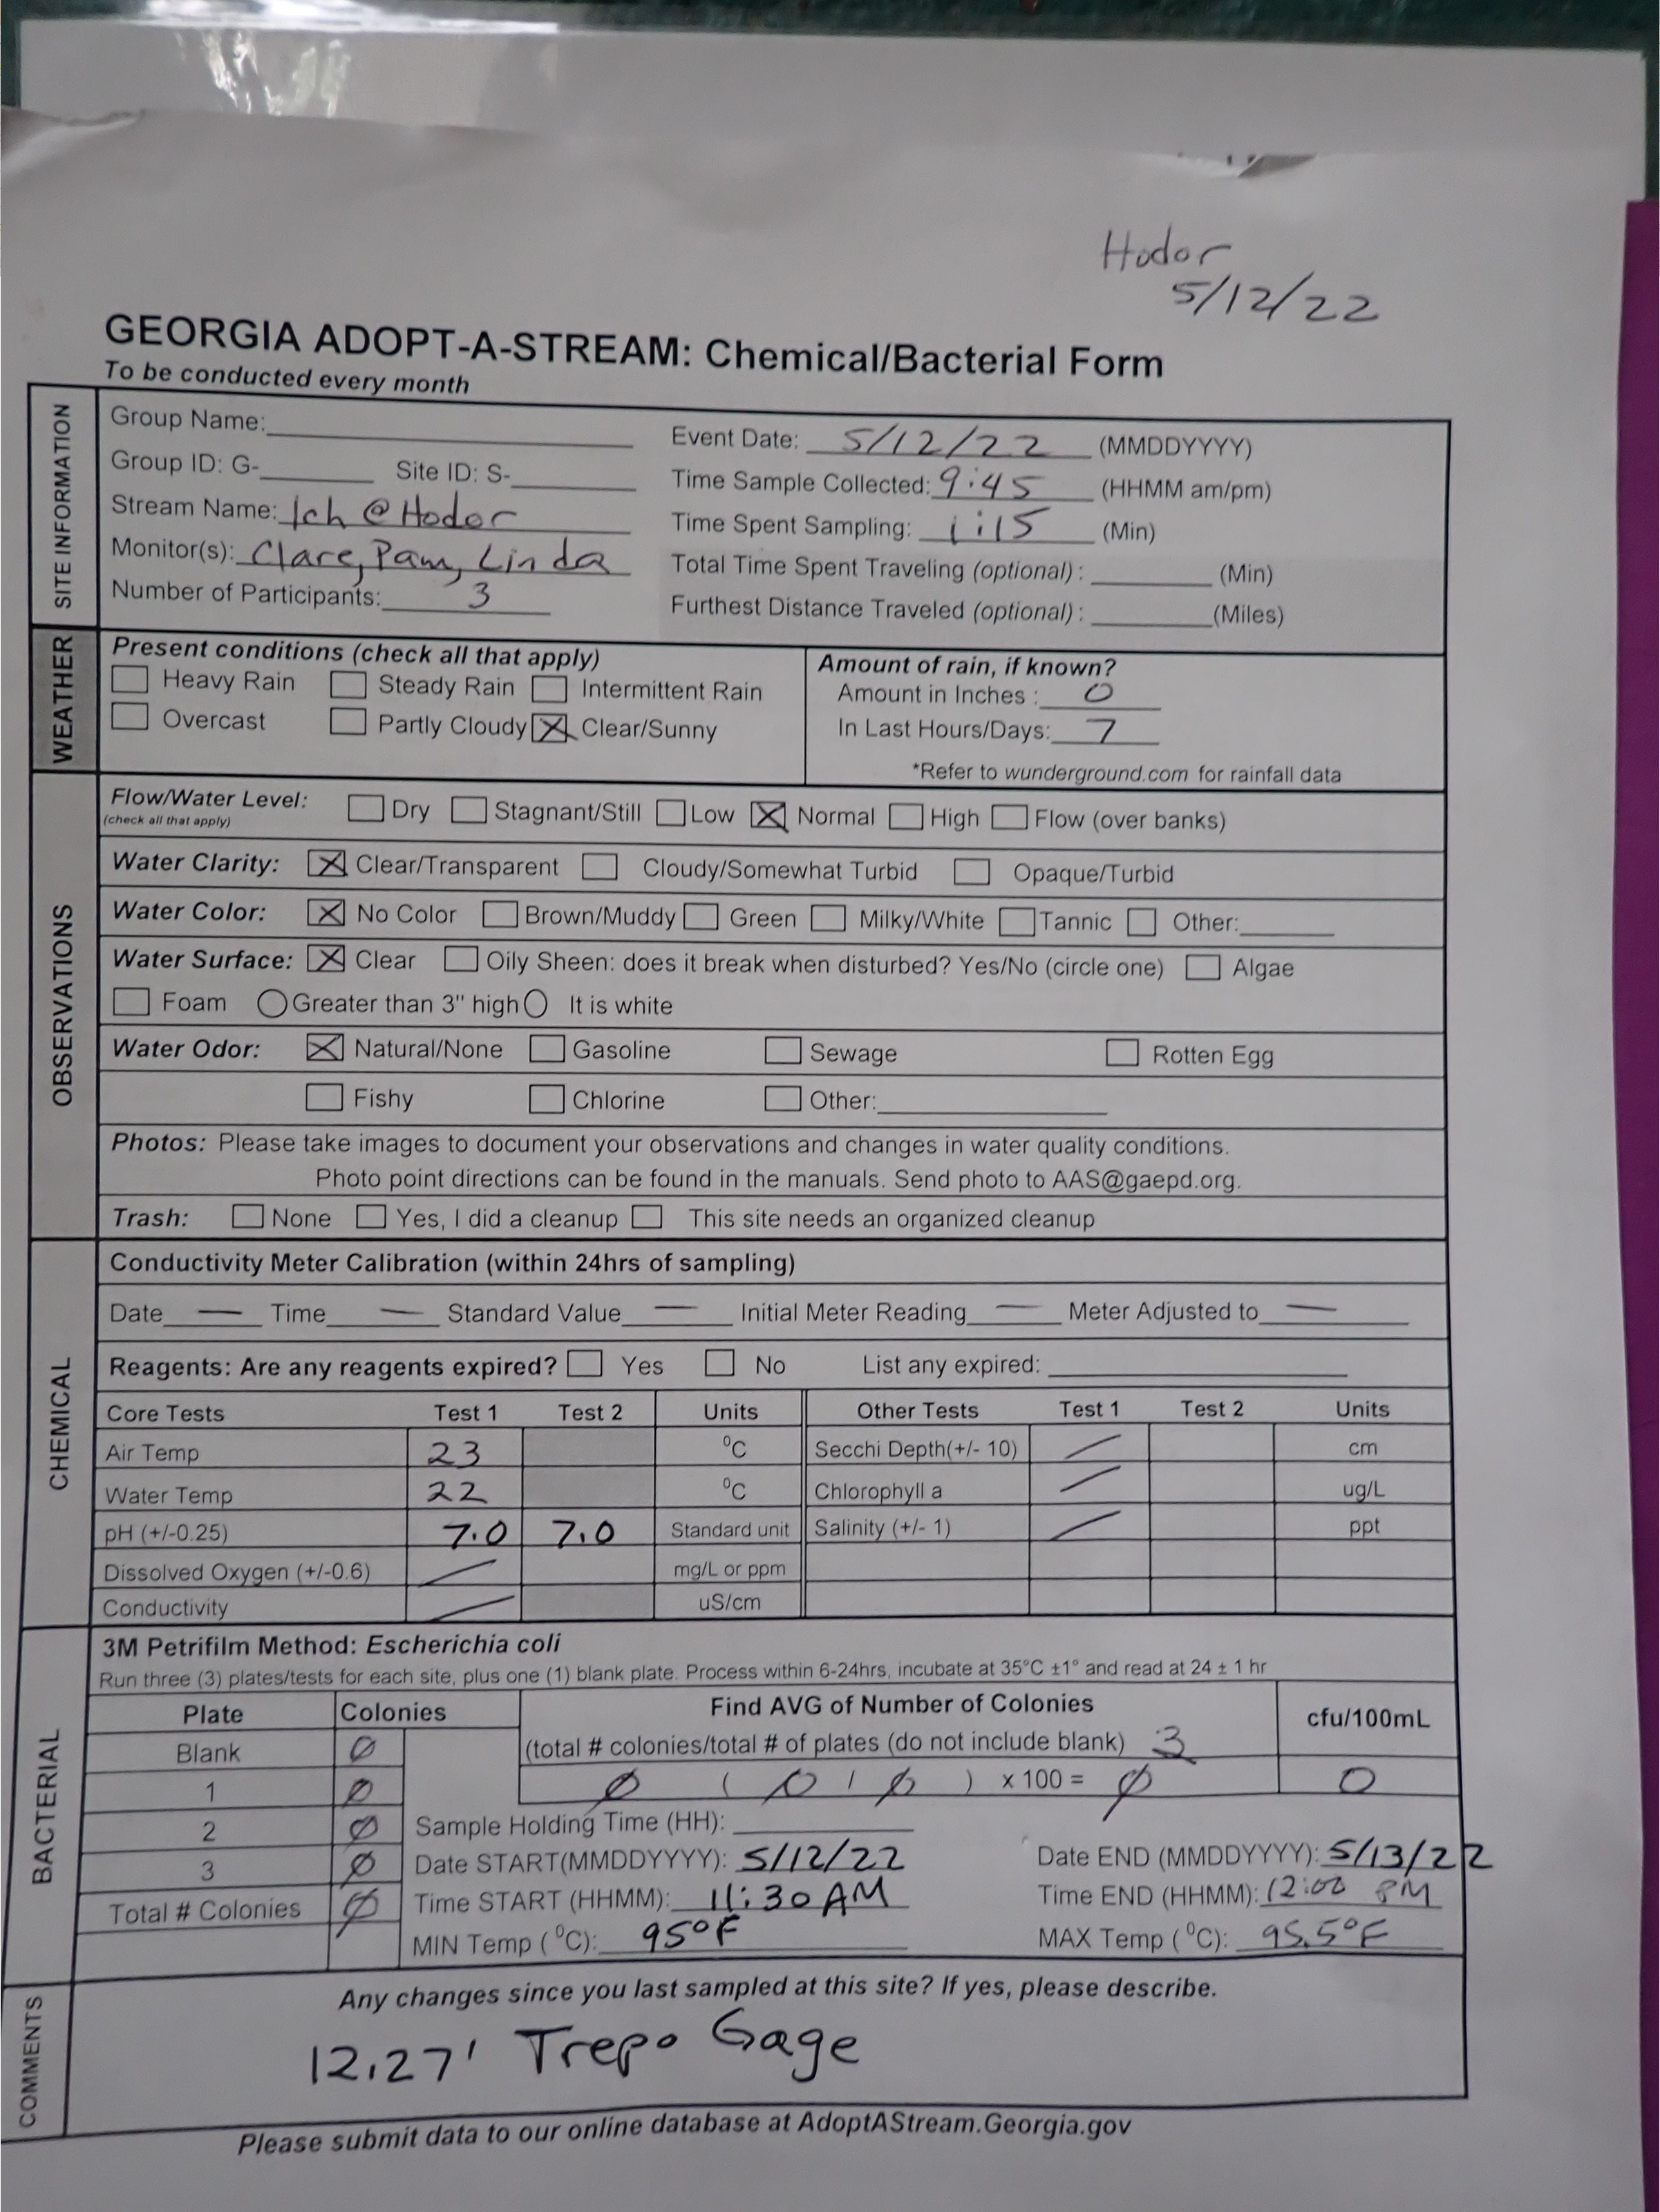 Hodor
5/12/22
GEORGIA ADOPT-A-STREAM: Chemical/Bacterial Form
To be conducted every month
SITE INFORMATION
Group Name:
Group ID: G- Site ID: S-
Stream Name: Ich @ Hodor
Monitor(s): Clare, Pam, Linda
Number of Participants: 3
Event Date: 5/12/22 (MMDDYYYY)
Time Sample Collected: 9:45 (HHMM am/pm)
Time Spent Sampling: 1:15 (Min)
Total Time Spent Traveling (optional) : (Min)
Furthest Distance Traveled (optional) : (Miles)
WEATHER
Present conditions (check all that apply)
Heavy Rain Steady Rain Intermittent Rain
Overcast Partly Cloudy X Clear/Sunny
Amount of rain, if known?
Amount in Inches : 0
In Last Hours/Days: 7
*Refer to wunderground.com for rainfall data
OBSERVATIONS
Flow/Water Level: Dry Stagnant/Still Low X Normal High Flow (over banks)
(check all that apply)
Water Clarity: X Clear/Transparent Cloudy/Somewhat Turbid Opaque/Turbid
Water Color: X No Color Brown/Muddy Green Milky/White Tannic Other:
Water Surface: X Clear Oily Sheen: does it break when disturbed? Yes/No (circle one) Algae
Foam Greater than 3" high It is white
Water Odor: X Natural/None Gasoline Sewage Rotten Egg
Fishy Chlorine Other:
Photos: Please take images to document your observations and changes in water quality conditions.
Photo point directions can be found in the manuals. Send photo to AAS@gaepd.org.
Trash: None Yes, I did a cleanup This site needs an organized cleanup
CHEMICAL
Conductivity Meter Calibration (within 24hrs of sampling)
Date — Time — Standard Value — Initial Meter Reading — Meter Adjusted to —
Reagents: Are any reagents expired? Yes No List any expired:
Core Tests Test 1 Test 2 Units Other Tests Test 1 Test 2 Units
Air Temp 23 °C Secchi Depth(+/- 10) / cm
Water Temp 22 °C Chlorophyll a / ug/L
pH (+/-0.25) 7.0 7.0 Standard unit Salinity (+/- 1) / ppt
Dissolved Oxygen (+/-0.6) / mg/L or ppm
Conductivity / uS/cm
BACTERIAL
3M Petrifilm Method: Escherichia coli
Run three (3) plates/tests for each site, plus one (1) blank plate. Process within 6-24hrs, incubate at 35°C ±1° and read at 24 ± 1 hr
Plate Colonies Find AVG of Number of Colonies cfu/100mL
Blank Ø (total # colonies/total # of plates (do not include blank) 3
1 Ø Ø ( 0 / Ø ) x 100 = Ø 0
2 Ø Sample Holding Time (HH):
3 Ø Date START(MMDDYYYY): 5/12/22 Date END (MMDDYYYY): 5/13/22
Total # Colonies Ø Time START (HHMM): 11:30 AM Time END (HHMM): 12:00 PM
MIN Temp (°C): 95°F MAX Temp (°C): 95.5°F
COMMENTS
Any changes since you last sampled at this site? If yes, please describe.
12.27' Trepo Gage
Please submit data to our online database at AdoptAStream.Georgia.gov